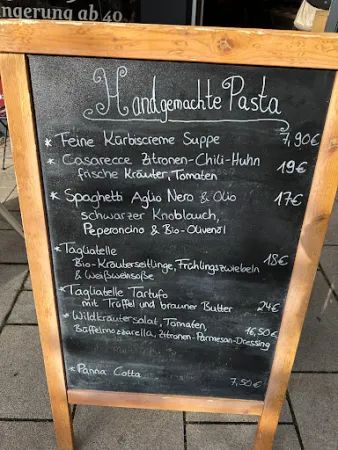 ngerung ab 40
Handgemachte Pasta
* Feine Kürbiscreme Suppe 7,90€
* Casarecce Zitronen-Chili-Huhn
frische Kräuter, Tomaten 19€
* Spaghetti Aglio Nero & Olio 17€
schwarzer Knoblauch,
Peperoncino & Bio-Olivenöl
* Tagliatelle
Bio-Kräuterseitlinge, Frühlingszwiebeln 18€
& Weißweinsoße
* Tagliatelle Tartufo
mit Trüffel und brauner Butter 24€
* Wildkräutersalat, Tomaten, 16,50€
Büffelmozzarella, Zitronen-Parmesan-Dressing
* Panna Cotta 7,50€